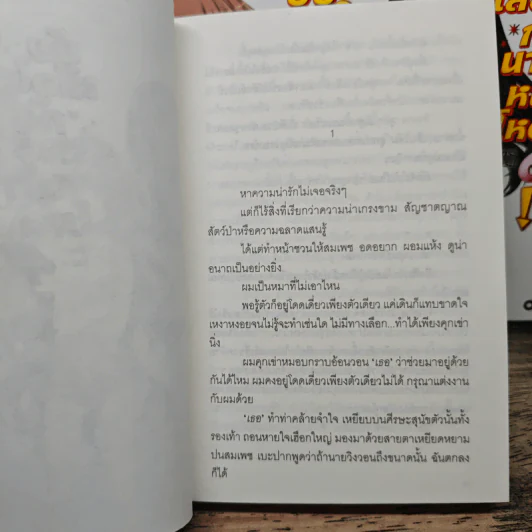 1
หาความน่ารักไม่เจอจริงๆ
แต่ก็ไร้สิ่งที่เรียกว่าความน่าเกรงขาม สัญชาตญาณ
สัตว์ป่าหรือความฉลาดแสนรู้
ได้แต่ทำหน้าชวนให้สมเพช อดอยาก ผอมแห้ง ดูน่า
อนาถเป็นอย่างยิ่ง
ผมเป็นหมาที่ไม่เอาไหน
พอรู้ตัวก็อยู่โดดเดี่ยวเพียงตัวเดียว แค่เดินก็แทบขาดใจ
เหงาหงอยจนไม่รู้จะทำเช่นใด ไม่มีทางเลือก...ทำได้เพียงคุกเข่า
นิ่ง
ผมคุกเข่าหมอบกราบอ้อนวอน ‘เธอ’ ว่าช่วยมาอยู่ด้วย
กันได้ไหม ผมคงอยู่โดดเดี่ยวเพียงตัวเดียวไม่ได้ กรุณาแต่งงาน
กับผมด้วย
‘เธอ’ ทำท่าคล้ายจำใจ เหยียบบนศีรษะสุนัขตัวนั้นทั้ง
รองเท้า ถอนหายใจเฮือกใหญ่ มองมาด้วยสายตาเหยียดหยาม
ปนสมเพช เบะปากพูดว่าถ้านายวิงวอนถึงขนาดนั้น ฉันตกลง
ก็ได้